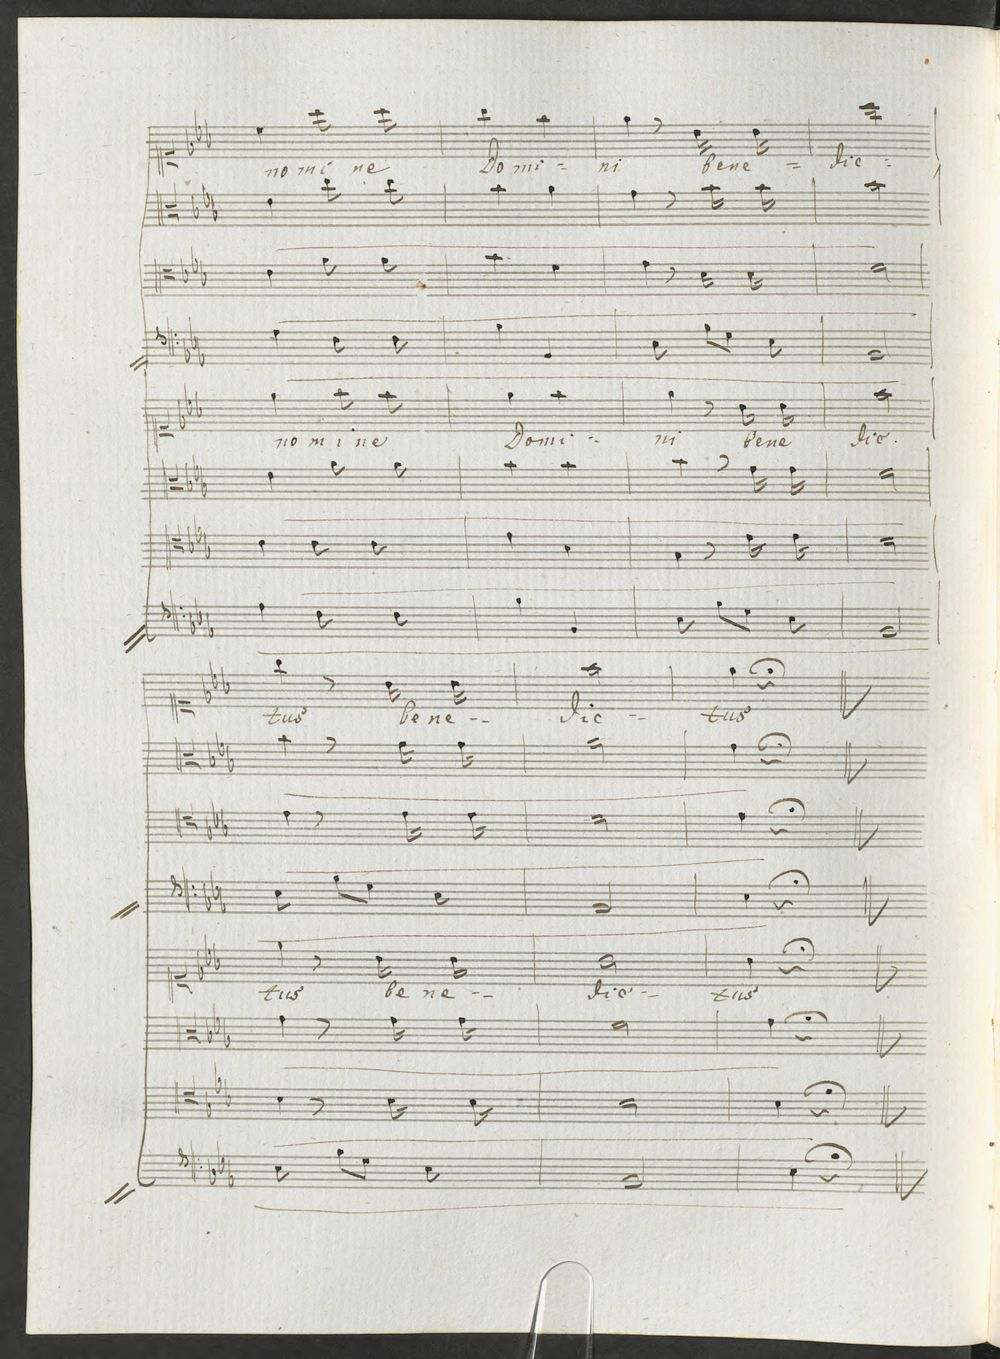 no mi ne Do mi - ni bene - dic -
no mi ne Domi - ni bene dic.
tus bene - - dic - - tus
tus be ne - - dic - - tus